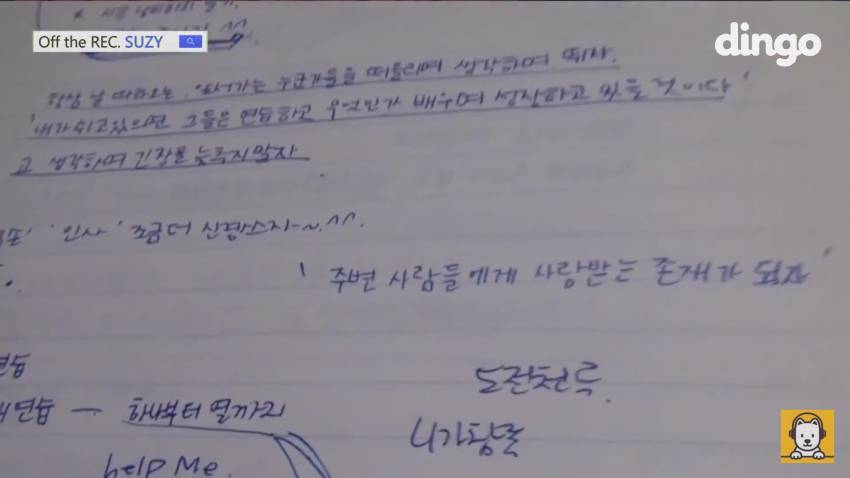 Off the REC. SUZY
dingo
항상 날 따라오는, 앞서가는 누군가들을 떠올리며 생각하며 뛰자.
'내가 쉬고있으면 그들은 연습하고 무엇인가 배우며 성장하고 있을 것이다'
고 생각하며 긴장을 늦추지말자
'인사' 조금더 신경쓰자~.^^.
'주변 사람들에게 사랑받는 존재가 되자'
연습
연습 — 하나부터 열까지
도전천곡.
니가참물
help Me.